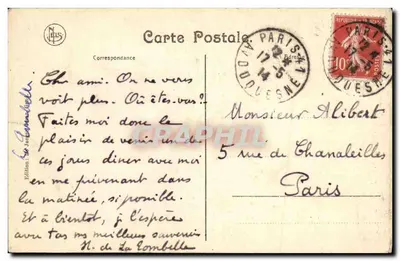 Carte Postale
Correspondance
Cher ami. On ne vous
voit plus. Où êtes-vous?
Faites moi donc le
plaisir de venir un de
ces jours diner avec moi
en me prévenant dans
la matinée, si possible.
Et à bientot, je l'espère
avec tous mes meilleurs souvenirs
H. de La Tombelle
PARIS 41
17-5
14
AV DUQUESNE
10
Monsieur Alibert
5 rue de Chanaleilles
Paris
Edition